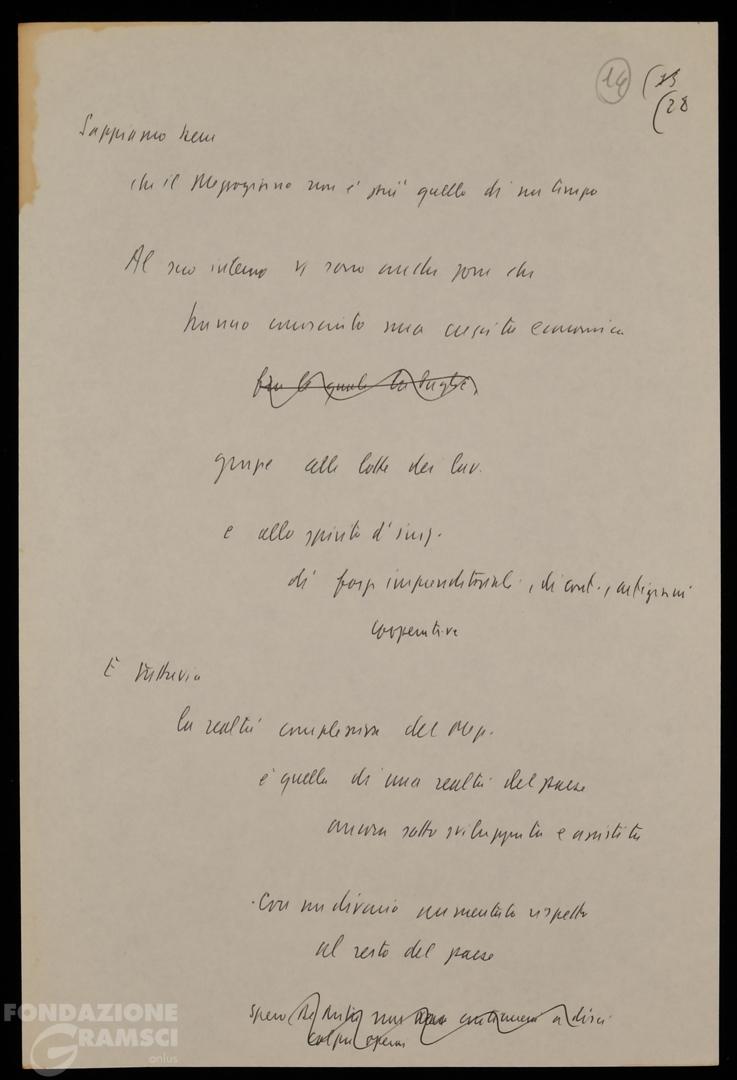 14 (25
(28
Sappiamo bene
che il Mezzogiorno non è più quello di un tempo
Al suo interno vi sono anche zone che
hanno conosciuto una crescita economica
fra le quali la Puglia,
grazie alle lotte dei lav.
e allo spirito d'
di forze imprenditoriali, di cont., artigiani
cooperative
E tuttavia
la realtà complessiva del Mezz.
è quella di una realtà del paese
ancora sotto sviluppata e assistita
Con un divario aumentato rispetto
al resto del paese
spero
FONDAZIONE
GRAMSCI
onlus